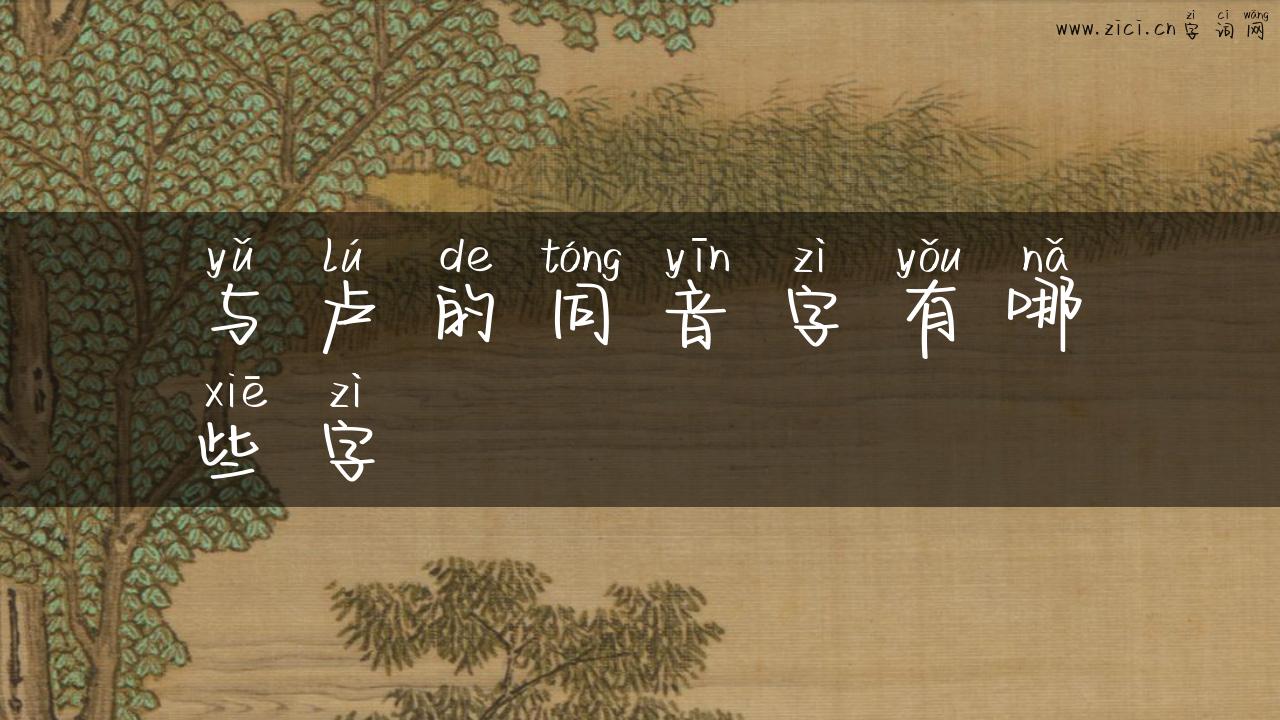 zì cí wǎng
www.zici.cn字词网
yǔ lú de tóng yīn zì yǒu nǎ
与卢的同音字有哪
xiē zì
些字